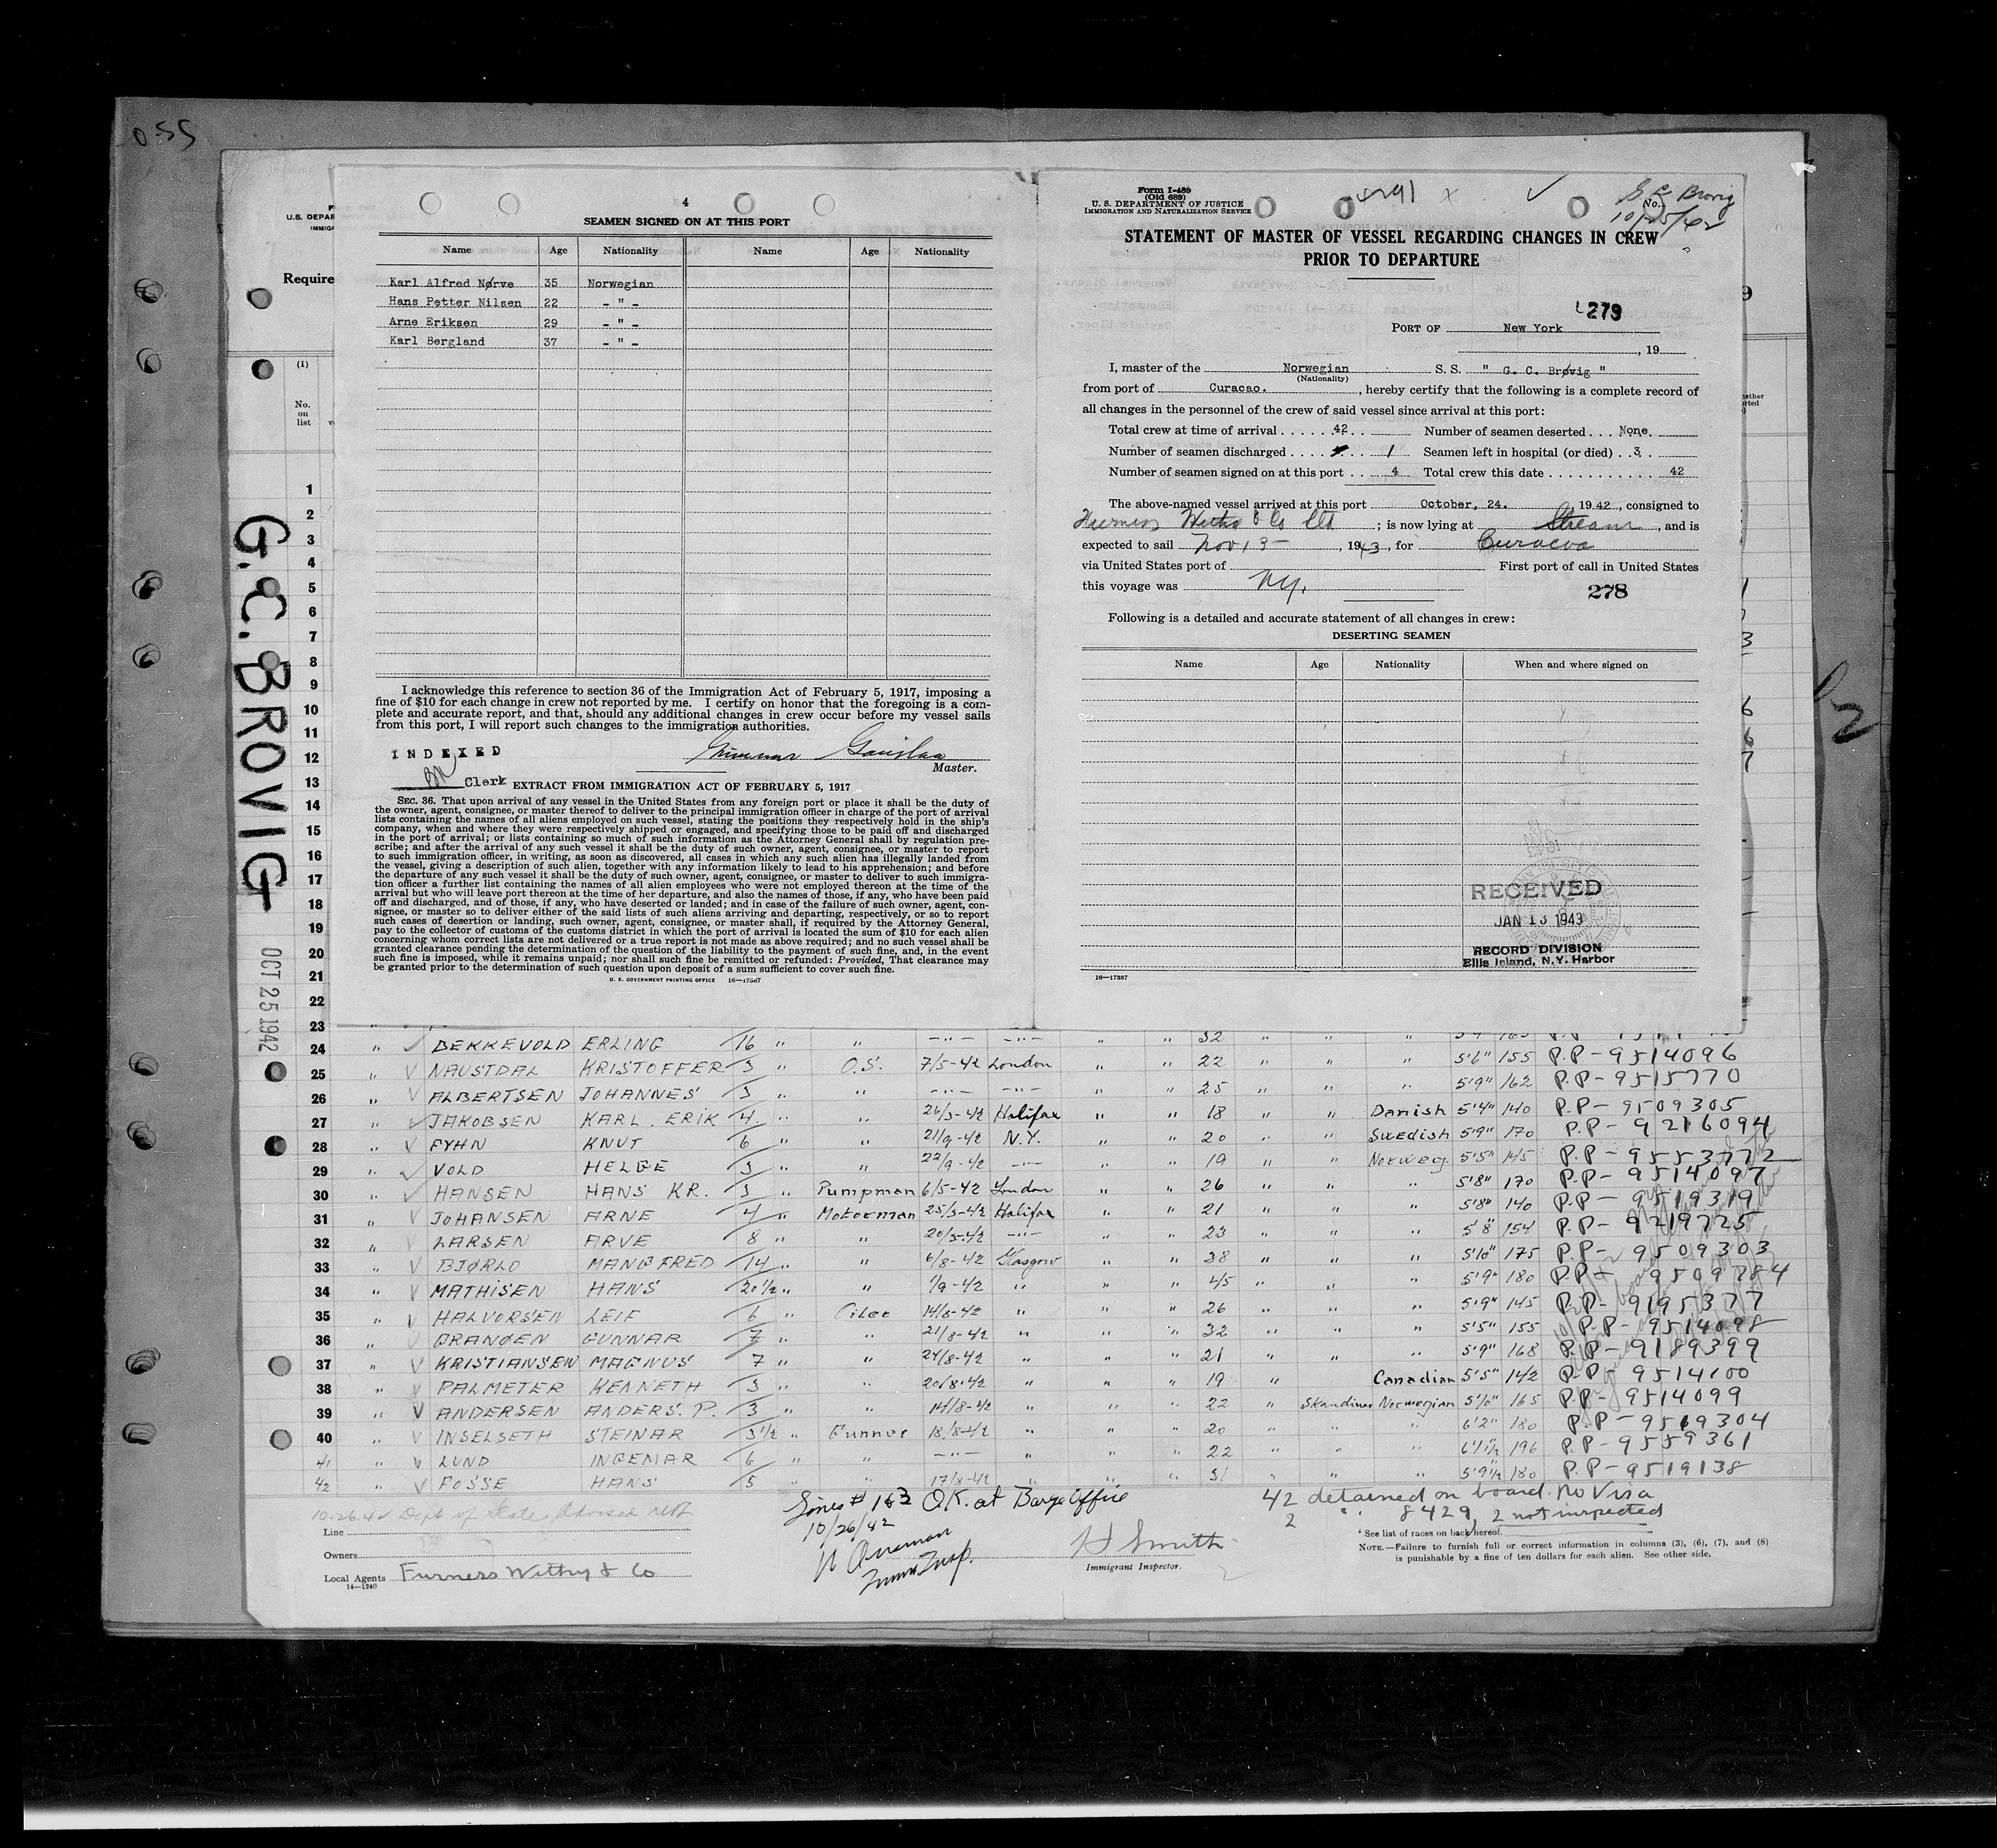 055
G.C. BROVIG
OCT 25 1942
U.S. DEPAR
IMMIG
Require
(1)
No.
on
list
1
2
3
4
5
6
7
8
9
10
11
12
13
14
15
16
17
18
19
20
21
22
23
4
SEAMEN SIGNED ON AT THIS PORT
Name Age Nationality Name Age Nationality
Karl Alfred Nørve 35 Norwegian
Hans Petter Nilsen 22 - " -
Arne Eriksen 29 - " -
Karl Bergland 37 - " -
I acknowledge this reference to section 36 of the Immigration Act of February 5, 1917, imposing a
fine of $10 for each change in crew not reported by me. I certify on honor that the foregoing is a com-
plete and accurate report, and that, should any additional changes in crew occur before my vessel sails
from this port, I will report such changes to the immigration authorities.
INDEXED
Clerk
Master.
EXTRACT FROM IMMIGRATION ACT OF FEBRUARY 5, 1917
SEC. 36. That upon arrival of any vessel in the United States from any foreign port or place it shall be the duty of
the owner, agent, consignee, or master thereof to deliver to the principal immigration officer in charge of the port of arrival
lists containing the names of all aliens employed on such vessel, stating the positions they respectively hold in the ship's
company, when and where they were respectively shipped or engaged, and specifying those to be paid off and discharged
in the port of arrival; or lists containing so much of such information as the Attorney General shall by regulation pre-
scribe; and after the arrival of any such vessel it shall be the duty of such owner, agent, consignee, or master to report
to such immigration officer, in writing, as soon as discovered, all cases in which any such alien has illegally landed from
the vessel, giving a description of such alien, together with any information likely to lead to his apprehension; and before
the departure of any such vessel it shall be the duty of such owner, agent, consignee, or master to deliver to such immigra-
tion officer a further list containing the names of all alien employees who were not employed thereon at the time of the
arrival but who will leave port thereon at the time of her departure, and also the names of those, if any, who have been paid
off and discharged, and of those, if any, who have deserted or landed; and in case of the failure of such owner, agent, con-
signee, or master so to deliver either of the said lists of such aliens arriving and departing, respectively, or so to report
such cases of desertion or landing, such owner, agent, consignee, or master shall, if required by the Attorney General,
pay to the collector of customs of the customs district in which the port of arrival is located the sum of $10 for each alien
concerning whom correct lists are not delivered or a true report is not made as above required; and no such vessel shall be
granted clearance pending the determination of the question of the liability to the payment of such fine, and, in the event
such fine is imposed, while it remains unpaid; nor shall such fine be remitted or refunded: Provided, That clearance may
be granted prior to the determination of such question upon deposit of a sum sufficient to cover such fine.
U. S. GOVERNMENT PRINTING OFFICE 16—17387
Form I-489
(Old 689)
U. S. DEPARTMENT OF JUSTICE
IMMIGRATION AND NATURALIZATION SERVICE
No.
G C Brovig
10/25/42
STATEMENT OF MASTER OF VESSEL REGARDING CHANGES IN CREW
PRIOR TO DEPARTURE
279
PORT OF New York
, 19
I, master of the Norwegian S. S. " G. C. Brøvig "
(Nationality)
from port of Curacao. , hereby certify that the following is a complete record of
all changes in the personnel of the crew of said vessel since arrival at this port:
Total crew at time of arrival 42 Number of seamen deserted None.
Number of seamen discharged 1 Seamen left in hospital (or died) 3
Number of seamen signed on at this port 4 Total crew this date 42
The above-named vessel arrived at this port October, 24. 1942, consigned to
Furness Withy & Co Ltd ; is now lying at Stream , and is
expected to sail Nov 13 , 1943, for Curacoa
via United States port of First port of call in United States
this voyage was NY.
278
Following is a detailed and accurate statement of all changes in crew:
DESERTING SEAMEN
Name Age Nationality When and where signed on
RECEIVED
JAN 13 1943
RECORD DIVISION
Ellis Island, N.Y. Harbor
16—17387
24 " BEKKEVOLD ERLING 16 " " -"- -"- " " 32 " " "
25 " NAUSTDAL KRISTOFFER 3 " O.S. 7/5-42 London " " 22 " " " 5'6" 155 P.P-9514096
26 " ALBERTSEN JOHANNES 3 " " -"- -"- " " 25 " " " 5'9" 162 P.P-9515770
27 " JAKOBSEN KARL. ERIK 4. " " 26/3-42 Halifax " " 18 " " Danish 5'4" 140 P.P-9509305
28 " FYHN KNUT 6 " " 21/9-42 N.Y. " " 20 " " Swedish 5'9" 170 P.P-9216094
29 " VOLD HELGE 3 " " 22/9-42 -"- " " 19 " " Norweg 5'5" 145 P.P-9553772
30 " HANSEN HANS KR. 3 " Pumpman 6/5-42 London " " 26 " " " 5'8" 170 P.P-9514097
31 " JOHANSEN ARNE 4 " Motorman 25/3-42 Halifax " " 21 " " " 5'8" 140 P.P-9519319
32 " LARSEN ARVE 8 " " 20/3-42 -"- " " 23 " " " 5'8 154 P.P-9219725
33 " BJØRLO MANGFRED 14 " " 6/8-42 Glasgow " " 38 " " " 5'10" 175 P.P-9509303
34 " MATHISEN HANS 20 1/2 " " 1/9-42 " " " 45 " " " 5'9" 180 P.P-9509784
35 " HALVORSEN LEIF 6 " Oiler 14/8-42 " " " 26 " " " 5'9" 145 P.P-9195377
36 " BRANDEN GUNNAR 7 " " 21/8-42 " " " 32 " " " 5'5" 155 P.P-9514098
37 " KRISTIANSEN MAGNUS 7 " " 24/8-42 " " " 21 " " " 5'9" 168 P.P-9189399
38 " PALMETER KENNETH 3 " " 20/8-42 " " " 19 " Canadian 5'5" 142 P.P-9514100
39 " ANDERSEN ANDERS. P. 3 " " 14/8-42 " " " 22 " Skandinav Norwegian 5'10" 165 P.P-9514099
40 " INSELSETH STEINAR 3 1/2 " Gunner 18/8-42 " " " 20 " " " 6'2" 180 P.P-9519304
41 " LUND INGEMAR 6 " " -"- " " " 22 " " " 6'1 1/2 196 P.P-9559361
42 " FOSSE HANS 5 " " 17/8-42 " " " 31 " " " 5'9 1/2 180 P.P-9519138
10-26-42 Dept of State Advised
Lines # 163 O.K. at Barge Office
10/26/42
Imm Insp.
42 detained on board. no Visa
2 " 8429, 2 not inspected
Line
Owners
Local Agents Furness Withy & Co
14—1240
H Smith
Immigrant Inspector.
* See list of races on back hereof.
NOTE.—Failure to furnish full or correct information in columns (3), (6), (7), and (8)
is punishable by a fine of ten dollars for each alien. See other side.